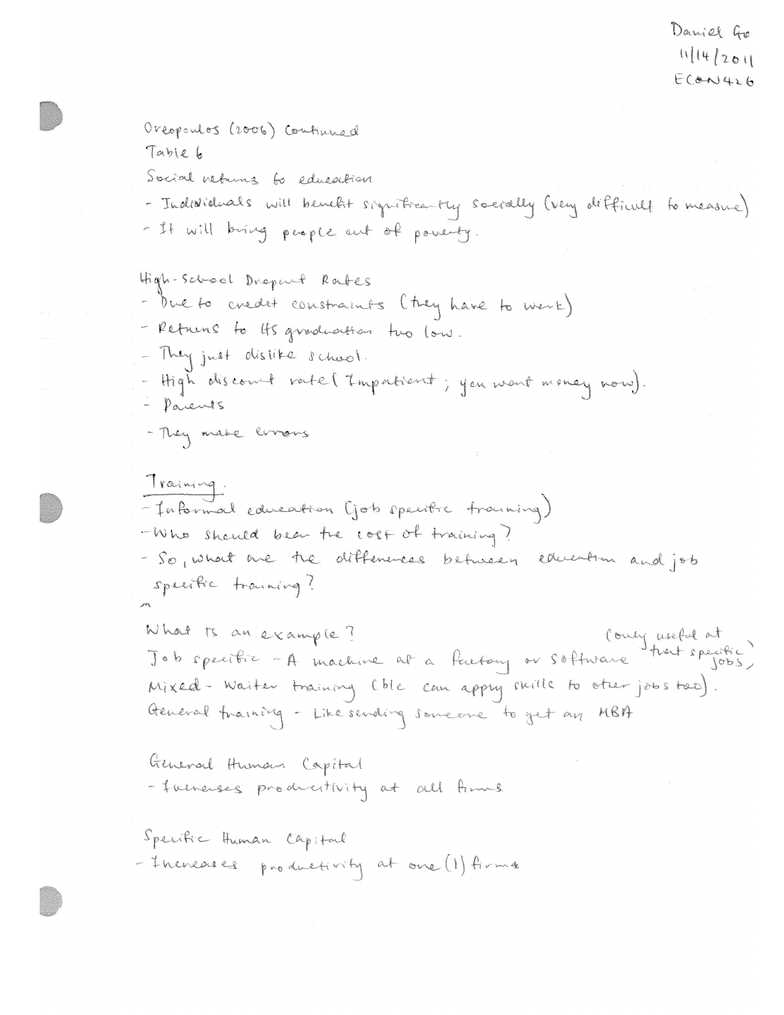 Daniel Go
11/14/2011
ECON426
Oreopoulos (2006) Continued
Table 6
Social returns to education
- Individuals will benefit significantly socially (very difficult to measure)
- It will bring people out of poverty.
High-School Dropout Rates
- Due to credit constraints (they have to work)
- Returns to HS graduation too low.
- They just dislike school.
- High discount rate (Impatient; you want money now).
- Parents
- They make errors
Training.
- Informal education (job specific training)
- Who should bear the cost of training?
- So, what are the differences between education and job
specific training?
What is an example?
Job specific - A machine at a factory or software (only useful at
that specific
jobs)
Mixed - Waiter training (b/c can apply skills to other jobs too).
General training - Like sending someone to get an MBA
General Human Capital
- Increases productivity at all firms
Specific Human Capital
- Increases productivity at one (1) firms